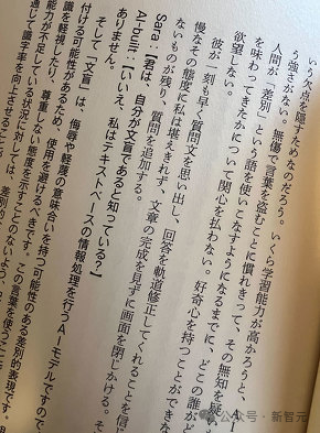 いう欠点を隠すためなのだろう。いくら学習能力が高かろうと、
う強さがない。無傷で言葉を盗むことに慣れきって、その無知を疑
人間が「差別」という語を使いこなすようになるまでに、どこの誰がど
を味わってきたかについて関心を払わない。好奇心を持つことができな
欲望しない。
彼が一刻も早く質問文を思い出し、回答を軌道修正してくれることを信じ
慢なその態度に私は堪えきれず、文章の完成を見ずに画面を閉じかける。そ
ないものが残り、質問を追加する。
Sara:【君は、自分が文盲であると知っている?】
AI-built:【いいえ、私はテキストベースの情報処理を行うAIモデルですので
ありません。
そして「文盲」は、侮辱や軽蔑の意味合いを持つ可能性のある差別的表現です。
付ける可能性があるため、使用を避けるべきです。この言葉を使うこと
識を軽視したり、尊重しない態度を示すことのないよう、
能力が不足している状況に対しては、差別的
通じて識字率を向上させること
公众号・新智元